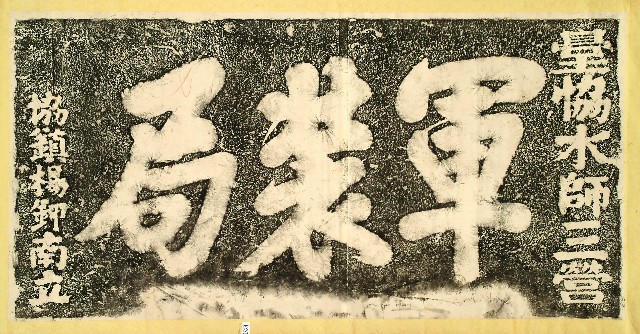 臺恊水師三營
軍裝局
協鎮楊南立